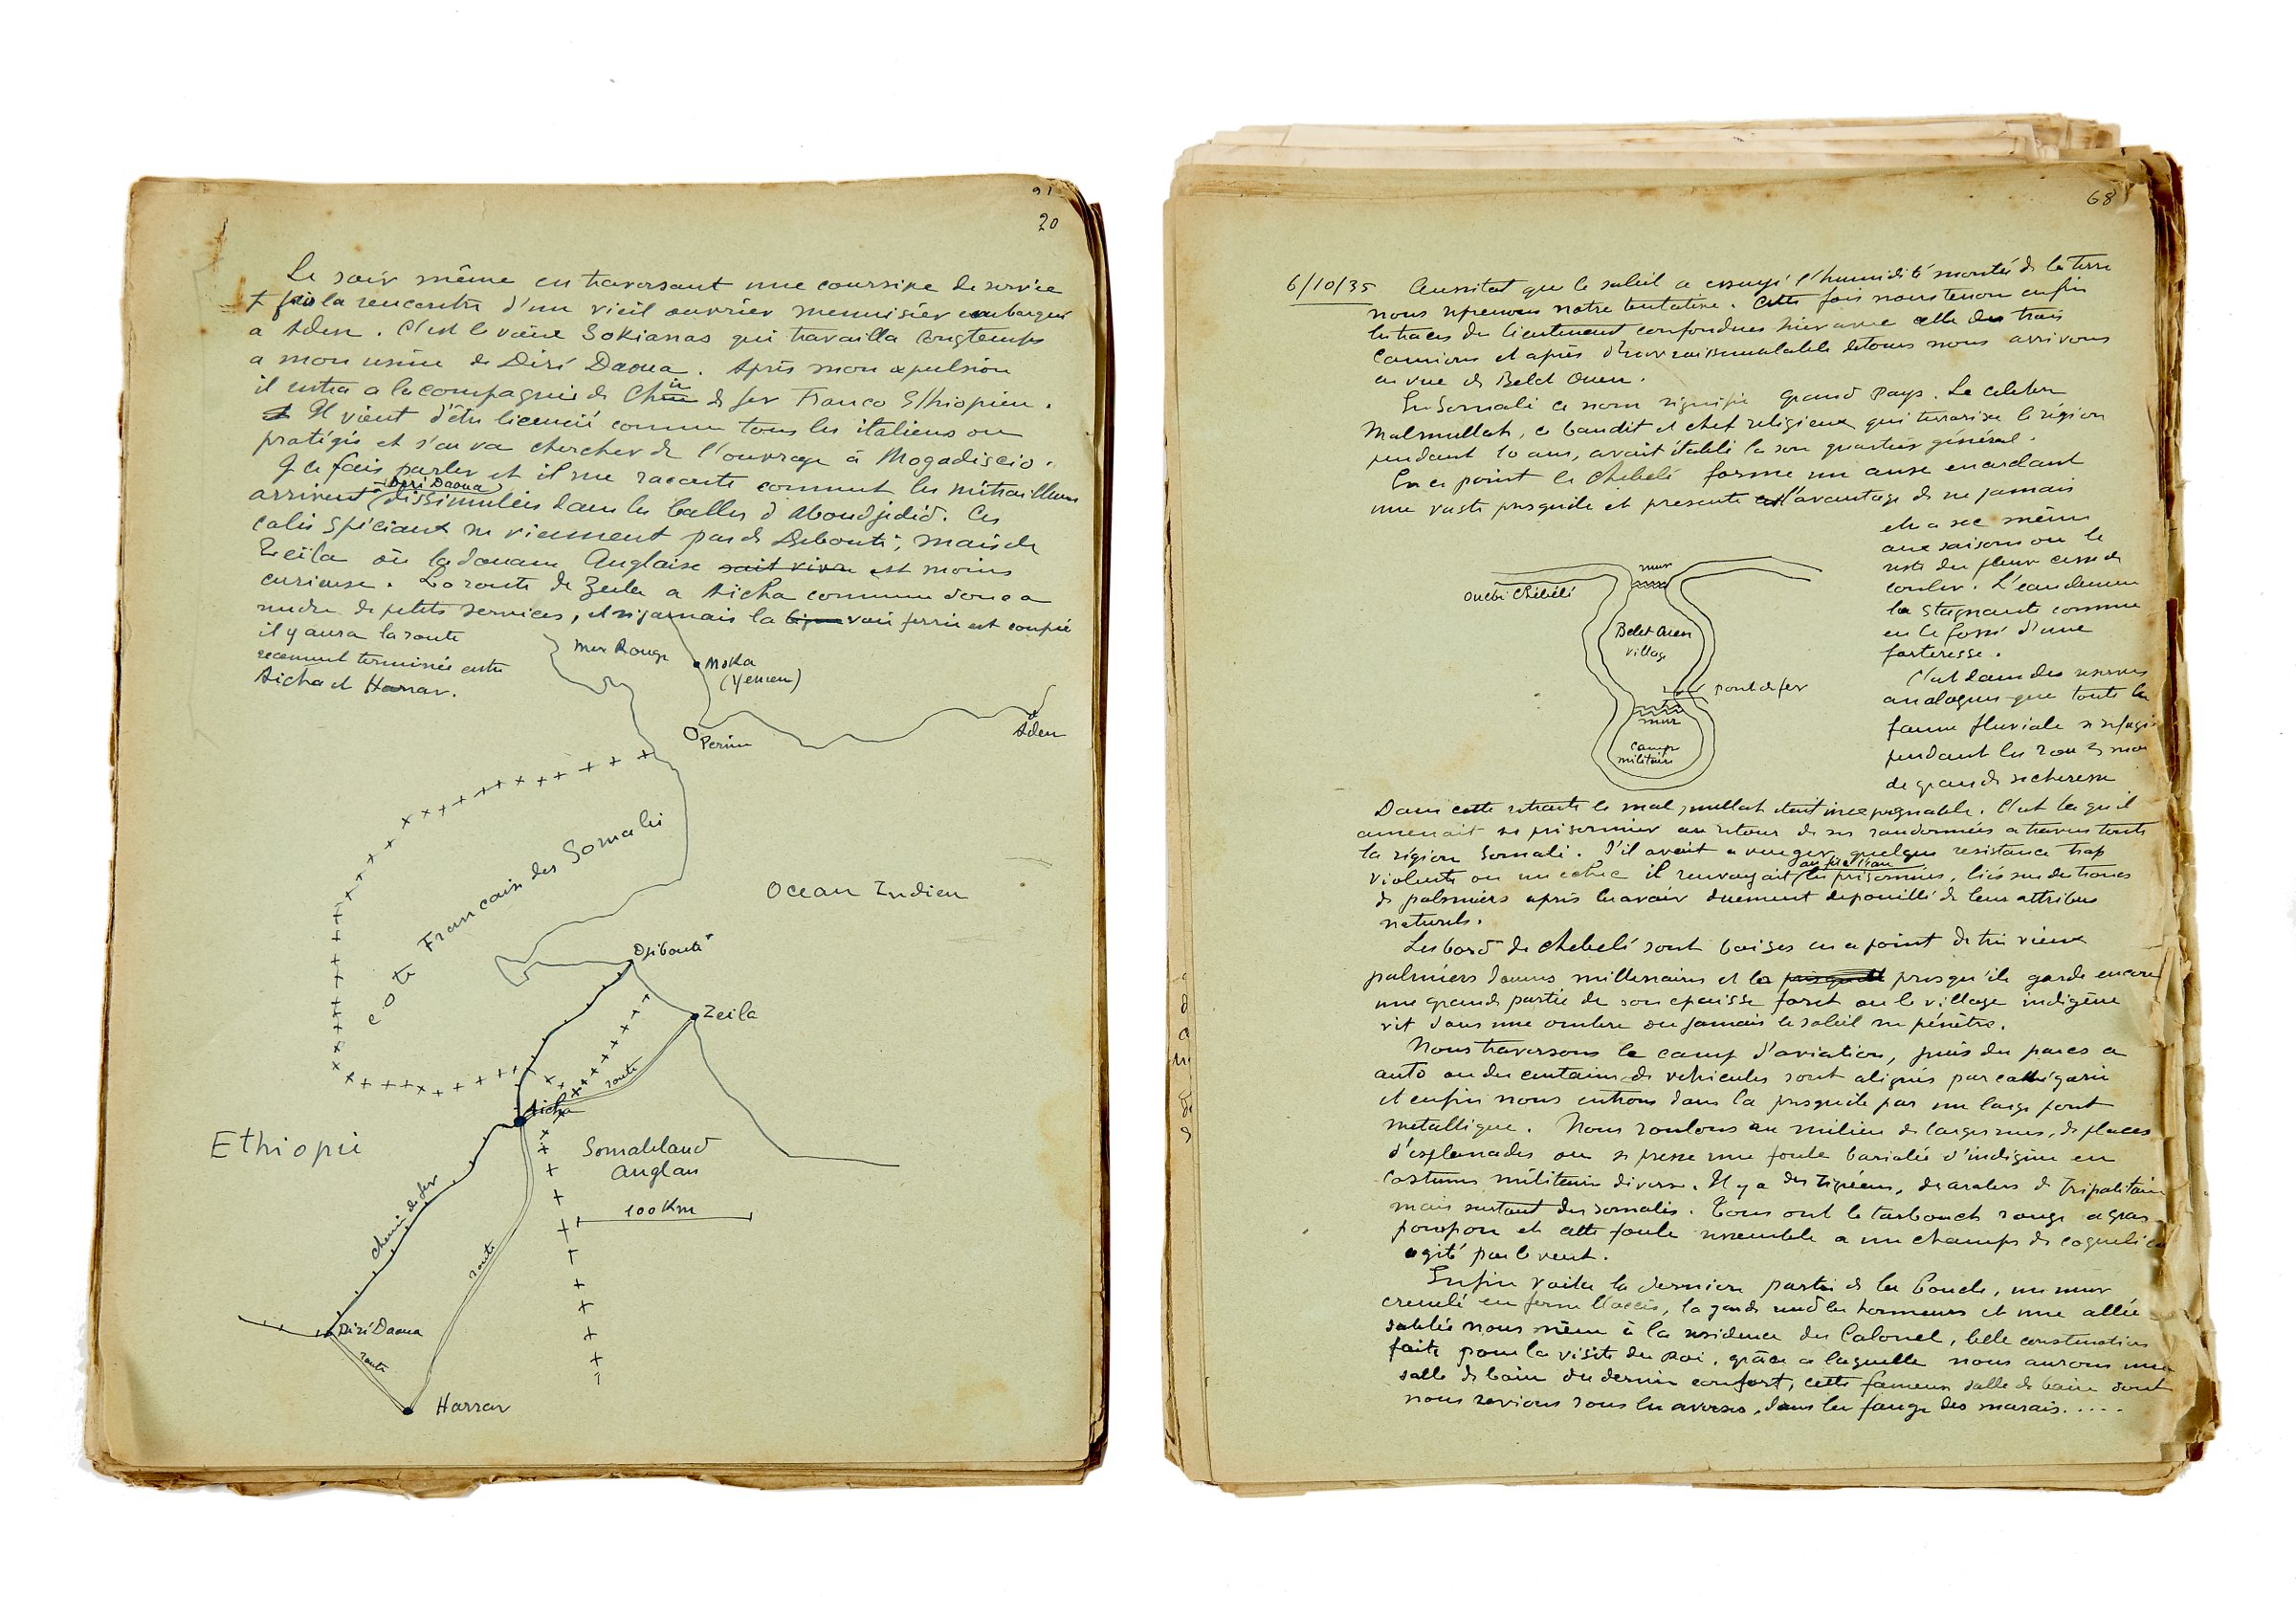 20
Le soir même en traversant une coursive de service
je fais la rencontre d'un vieil ouvrier menuisier embarqué
a Aden. C'est le vieux Sokianas qui travailla longtemps
a mon usine de Diré Daoua. Après mon expulsion
il entra a la compagnie de Chin de fer Franco Ethiopien.
Il vient d'être licencié comme tous les italiens ou
protégés et s'en va chercher de l'ouvrage à Mogadiscio.
Je le fais parler et il me raconte comment les mitrailleuses
arrivent a Diré Daoua dissimulées dans les balles d'Aboudjedid. Ces
colis spéciaux ne viennent pas de Djibouti, mais de
Zeila où la douane Anglaise sait vivre est moins
curieuse. La route de Zeila a Aicha commence donc a
rendre de petits services, et si jamais la ligne voie ferrée est coupée
il y aura la route
recemment terminée entre
Aicha et Harrar.
Mer Rouge
Moka
(Yemen)
Perim
Aden
Cote Francaise des Somalis
Ocean Indien
Djibouti
Zeila
route
Aicha
Ethiopie
Somaliland
Anglais
100 Km
chemin de fer
route
Diré Daoua
route
Harrar
68
6/10/35 Aussitot que le soleil a essuyé l'humidité montée de la terre
nous reprenons notre tentative. Cette fois nous tenons enfin
les traces du lieutenant confondues hier avec celle des trois
camions et après d'invraisemblables detours nous arrivons
en vue de Belet Ouen.
En Somali ce nom signifie Grand Pays. Le celebre
Malmullah, ce bandit et chef religieux qui terrorisa la région
pendant 10 ans, avait établi la son quartier général.
En ce point le Chebelé forme une anse encerclant
une vaste presquile et presente l'avantage de ne jamais
etre a sec même
aux saisons ou le
reste du fleuve cesse de
couler. L'eau demeure
la stagnante comme
en le fossé d'une
forteresse.
C'est dans des reserves
analogues que toute la
faune fluviale se refugie
pendant les 2 ou 3 mois
de grande secheresse
Ouebi Chébélé
mur
Belet Ouen
village
pont de fer
mur
Camp
militaire
Dans cette retraite le mal mullah etait inexpugnable. C'est la qu'il
amenait ses prisonniers au retour de ses randonnées a travers toute
la région Somali. S'il avait a venger quelque resistance trop
violente ou un echec il renvoyait au fil de l'eau les prisonniers, liés sur des troncs
de palmiers après les avoir duement depouillé de leurs attributs
naturels.
Les bords de Chebelé sont boisés en ce point de très vieux
palmiers doums millenaires et la presqu'ile garde encore
une grande partie de son epaisse foret ou le village indigène
vit dans une ombre ou jamais le soleil ne pénètre.
Nous traversons le camp d'aviation, puis des parcs a
auto ou des centaines de vehicules sont alignés par cathégorie
et enfin nous entrons dans la presquile par un large pont
metallique. Nous roulons au milieu de larges rues, de places
d'esplanades ou se presse une foule bariolée d'indigène en
costumes militaires divers. Il y a des Tigréens, des arabes de Tripolitaine
mais surtout des somalis. Tous ont le tarbouch rouge a gros
pompon et cette foule ressemble a un champs de coquelicots
agité par le vent.
Enfin voila la derniere partie de la boucle, un mur
crenelé en ferme l'accès, la garde rend les honneurs et une allée
sablée nous mène à la residence du Colonel, belle construction
faite pour la visite du Roi, grâce a laquelle nous aurons une
salle de bain du dernier confort, cette fameuse salle de bain dont
nous revions sous les averses, dans la fange des marais.....